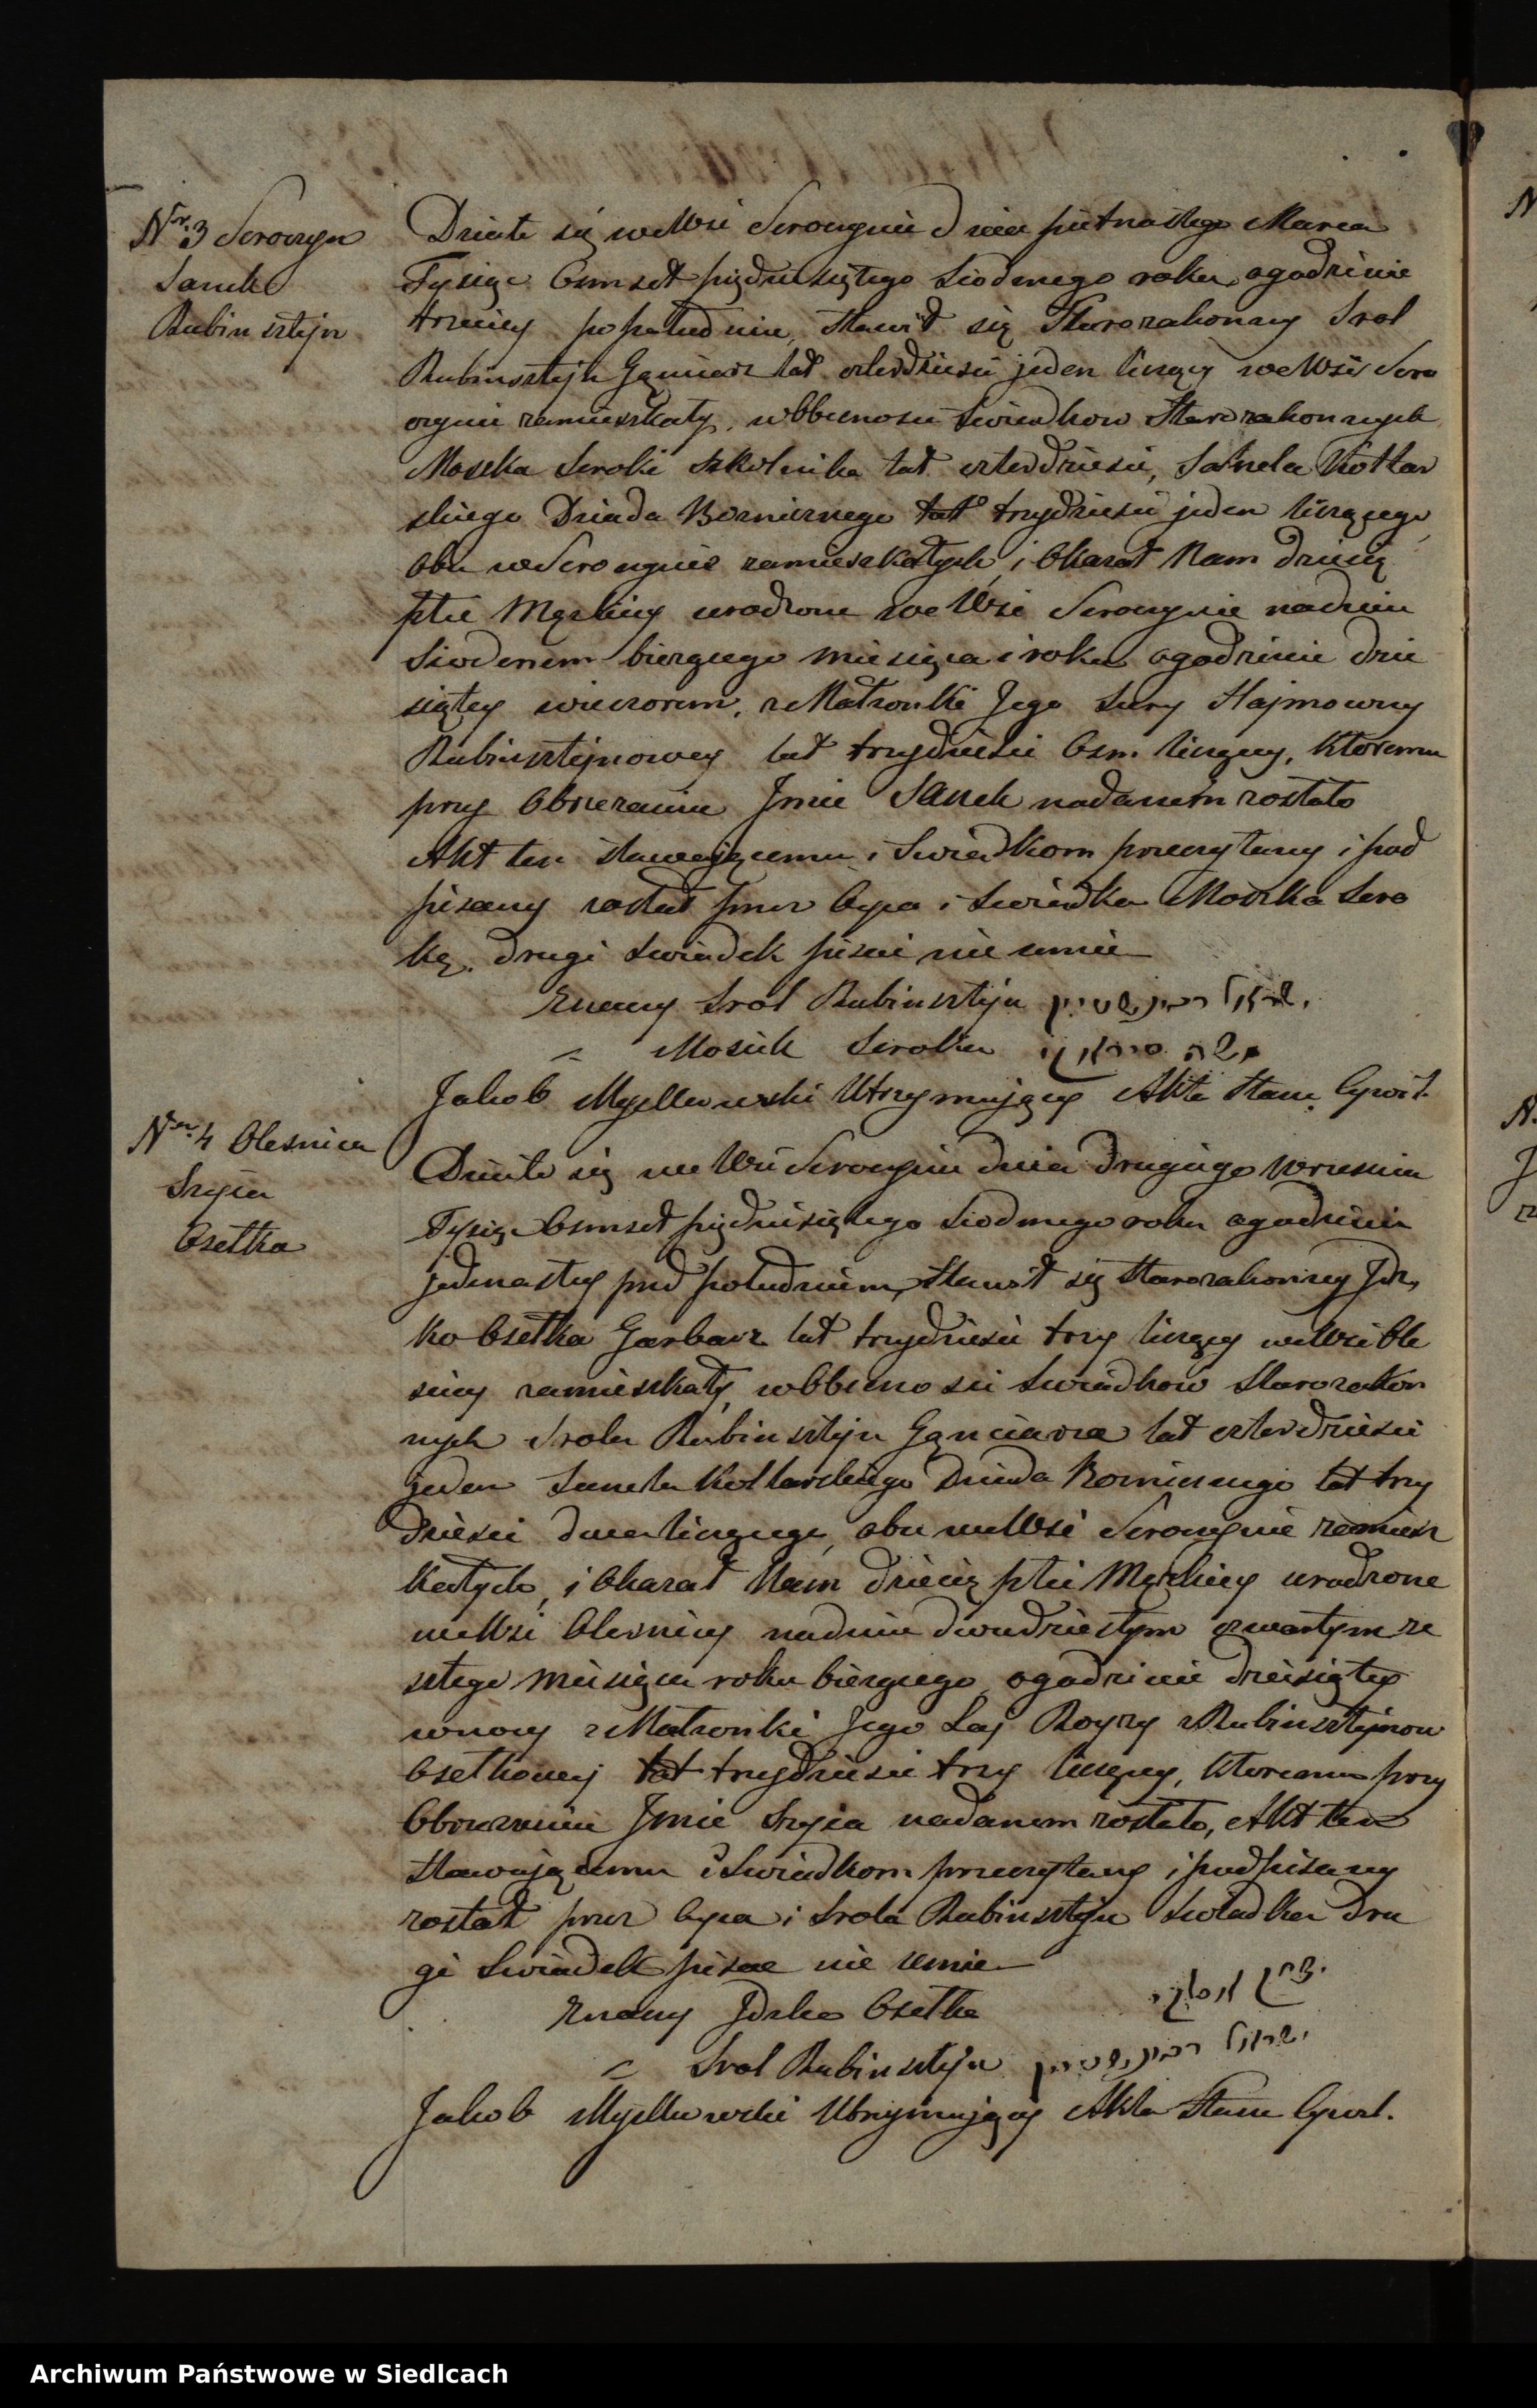 Nr. 3 Seroczyn
Sanek
Rubinsztejn
Działo się we Wsi Seroczynie Dnia piętnastego Marca
Tysiąc Osmset pięćdziesiątego Siodmego roku, ogodzinie
trzeciey popołudniu, Stawił się Starozakonny Srol
Rubinsztejn Gąnciarz lat czterdzieści jeden liczący we Wsi Sero
czynie zamieszkały, wobecnosci Swiadkow Starozakonnych
Moszka Seroki Szkolnika lat czterdzieści, Sanela Kotlar
skiego Dziada Boznicznego lat trzydzieści jeden liczącego,
obu w Seroczynie zamieszkałych, i Okazał Nam dziecię
płci Męskiey urodzone we Wsi Seroczynie nadniu
Siodenem bierzącego miesiąca i roku ogodzinie dzie
siątey wieczorem, z Małzonki Jego Sury Hajmowny
Rubinsztejnowey lat trzydzieści Osm liczącey, Ktoremu
przy Obrzezaniu Jmie Sanek nadanem zostało
Akt ten Stawającemu i Swiadkom przeczytany i pod
pisany został przez Oyca i Swiadka Moszka Sero
kę. drugi Swiadek pisać nie umie
Znaczy Srol Rubinsztejn ישראל רובינשטיין
״ Mosiek Seroka משה סיראקי
Jakob Utrzymujący Akta Stanu Cywil.
Nr. 4 Olesnica
Szyia
Osetka
Działo się we Wsi Seroczynie dnia drugiego Wrzesnia
Tysiąc Osmset pięćdziesiątego Siodmego roku ogodzinie
jedenastey przed południem, Stawił się Starozakonny Jdz,
ko Osetka Garbarz lat trzydzieści trzy liczący we Wsi Ole
snicy zamieszkały, wobecnosci Swiadkow Starozakon
nych Srola Rubinsztejn Gąnciarza lat czterdzieści
jeden Sanela Kotlarskiego Dziada Boznicznego lat trzy
dzieści dwa liczącego, obu we Wsi Seroczynie zamiesz
kałych, i Okazał Nam dziecię płci Męskiey urodzone
we Wsi Olesnicy nadniu dwudziestym czwartym ze
szłego miesiąca roku bierzącego, ogodzinie dziesiątey
wnocy z Małzonki Jego Łaj Royzy z Rubinsztejnow
Osetkowej lat trzydzieści trzy liczącey, Ktoremu przy
Obrzezaniu Jmie Szyia nadanem zostało, Akt ten
Stawającemu i Swiadkom przeczytany i podpisany
został przez Oyca i Srola Rubinsztejn Swiadka dru
gi Swiadek pisac nie umie
Znaczy Jdzko Osetka יצחק אסטקי
״ Srol Rubinsztejn ישראל רובינשטיין
Jakob Utrzymujący Akta Stanu Cywil.
Archiwum Państwowe w Siedlcach